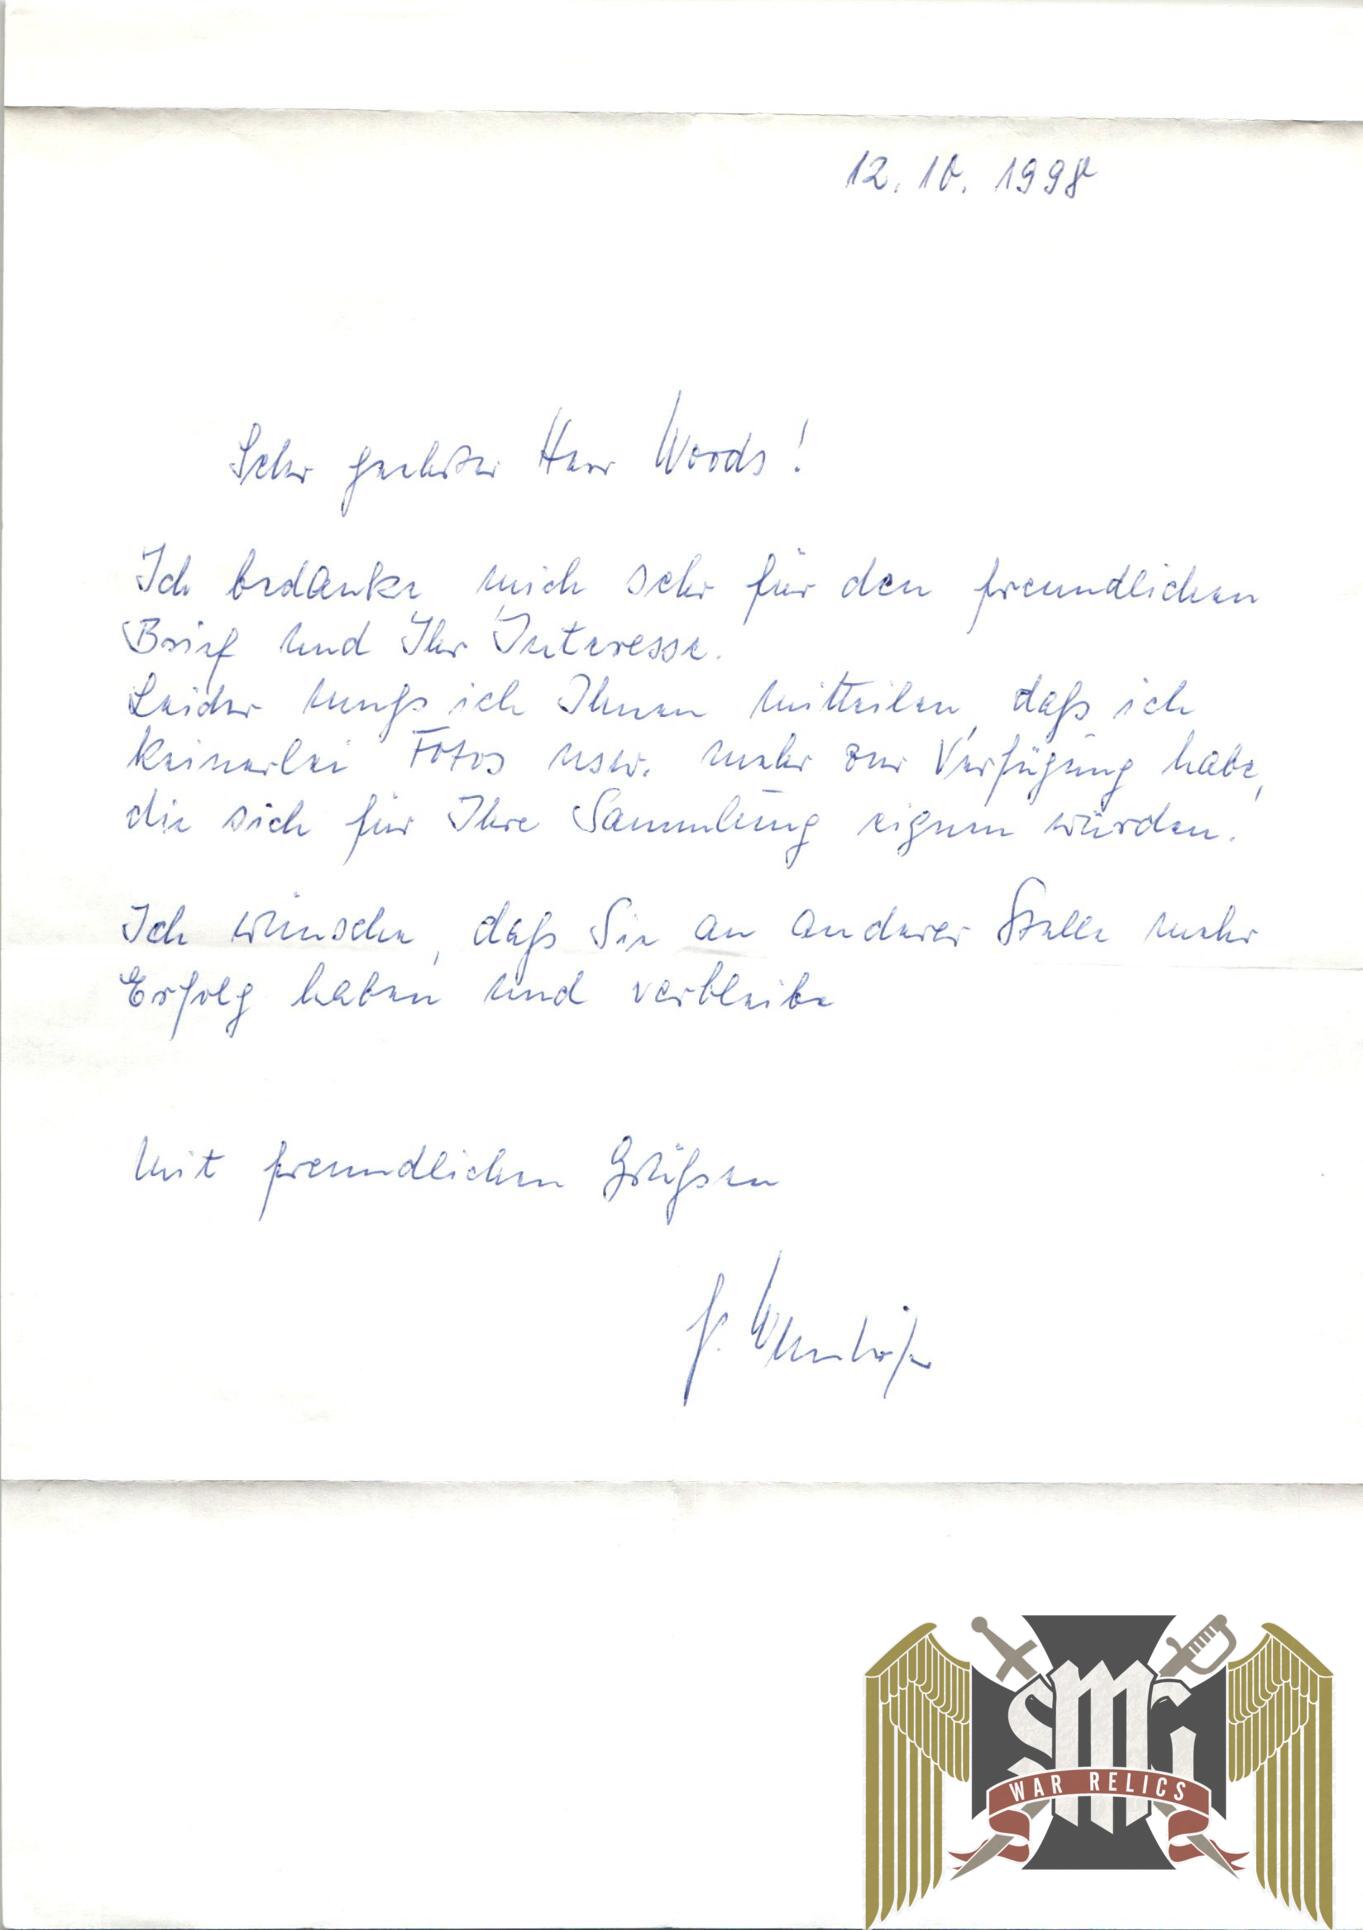 12. 10. 1998
Sehr geehrter Herr Woods!
Ich bedanke mich sehr für den freundlichen
Brief und Ihr Interesse.
Leider muß ich Ihnen mitteilen, daß ich
keinerlei Fotos usw. mehr zur Verfügung habe,
die sich für Ihre Sammlung eignen würden.
Ich wünsche, daß Sie an anderer Stelle mehr
Erfolg haben und verbleibe
Mit freundlichen Grüßen
SMG
WAR RELICS